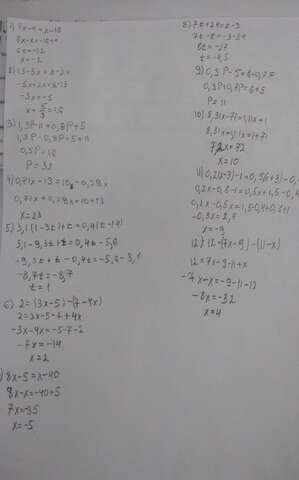 1) 7x-4=x-16
7x-x=-16+4
6x=-12
x=-2
2) 13-5x=8-2x
-5x+2x=8-13
-3x=-5
3) 1,3P-11=0,8P+5
1,3P-0,8P=5+11
0,5P=16
P=32
4) 0,71x-13=10-0,29x
0,71x+0,29x=10+13
x=23
5) 3,1(1-3t)+t=0,4(t-14)
3,1-9,3t+t=0,4t-5,6
-9,3t+t-0,4t=-5,6-3,1
-8,7t=-8,7
t=1
6) 2=(3x-5)-(7-4x)
2=3x-5-7+4x
-3x-4x=-5-7-2
-7x=-14
x=2
8x-5=x-40
8x-x=-40+5
7x=-35
x=-5
8) 7t+24=t-3
7t-t=-3-24
6t=-27
t=-4,5
9) 0,3P-5=6-0,7P
0,3P+0,7P=6+5
P=11
10) 8,3(x-7)=1,1x+1
7,2x=72
x=10
11) 0,2(x-3)-1=0,5(x+3)-0,4
0,2x-0,6-1=0,5x+1,5-0,4
0,2x-0,5x=1,5-0,4+0,6+1
-0,3x=2,7
x=-9
12) 12=(7x-9)-(11-x)
12=7x-9-11+x
-7x-x=-9-11-12
-8x=-32
x=4